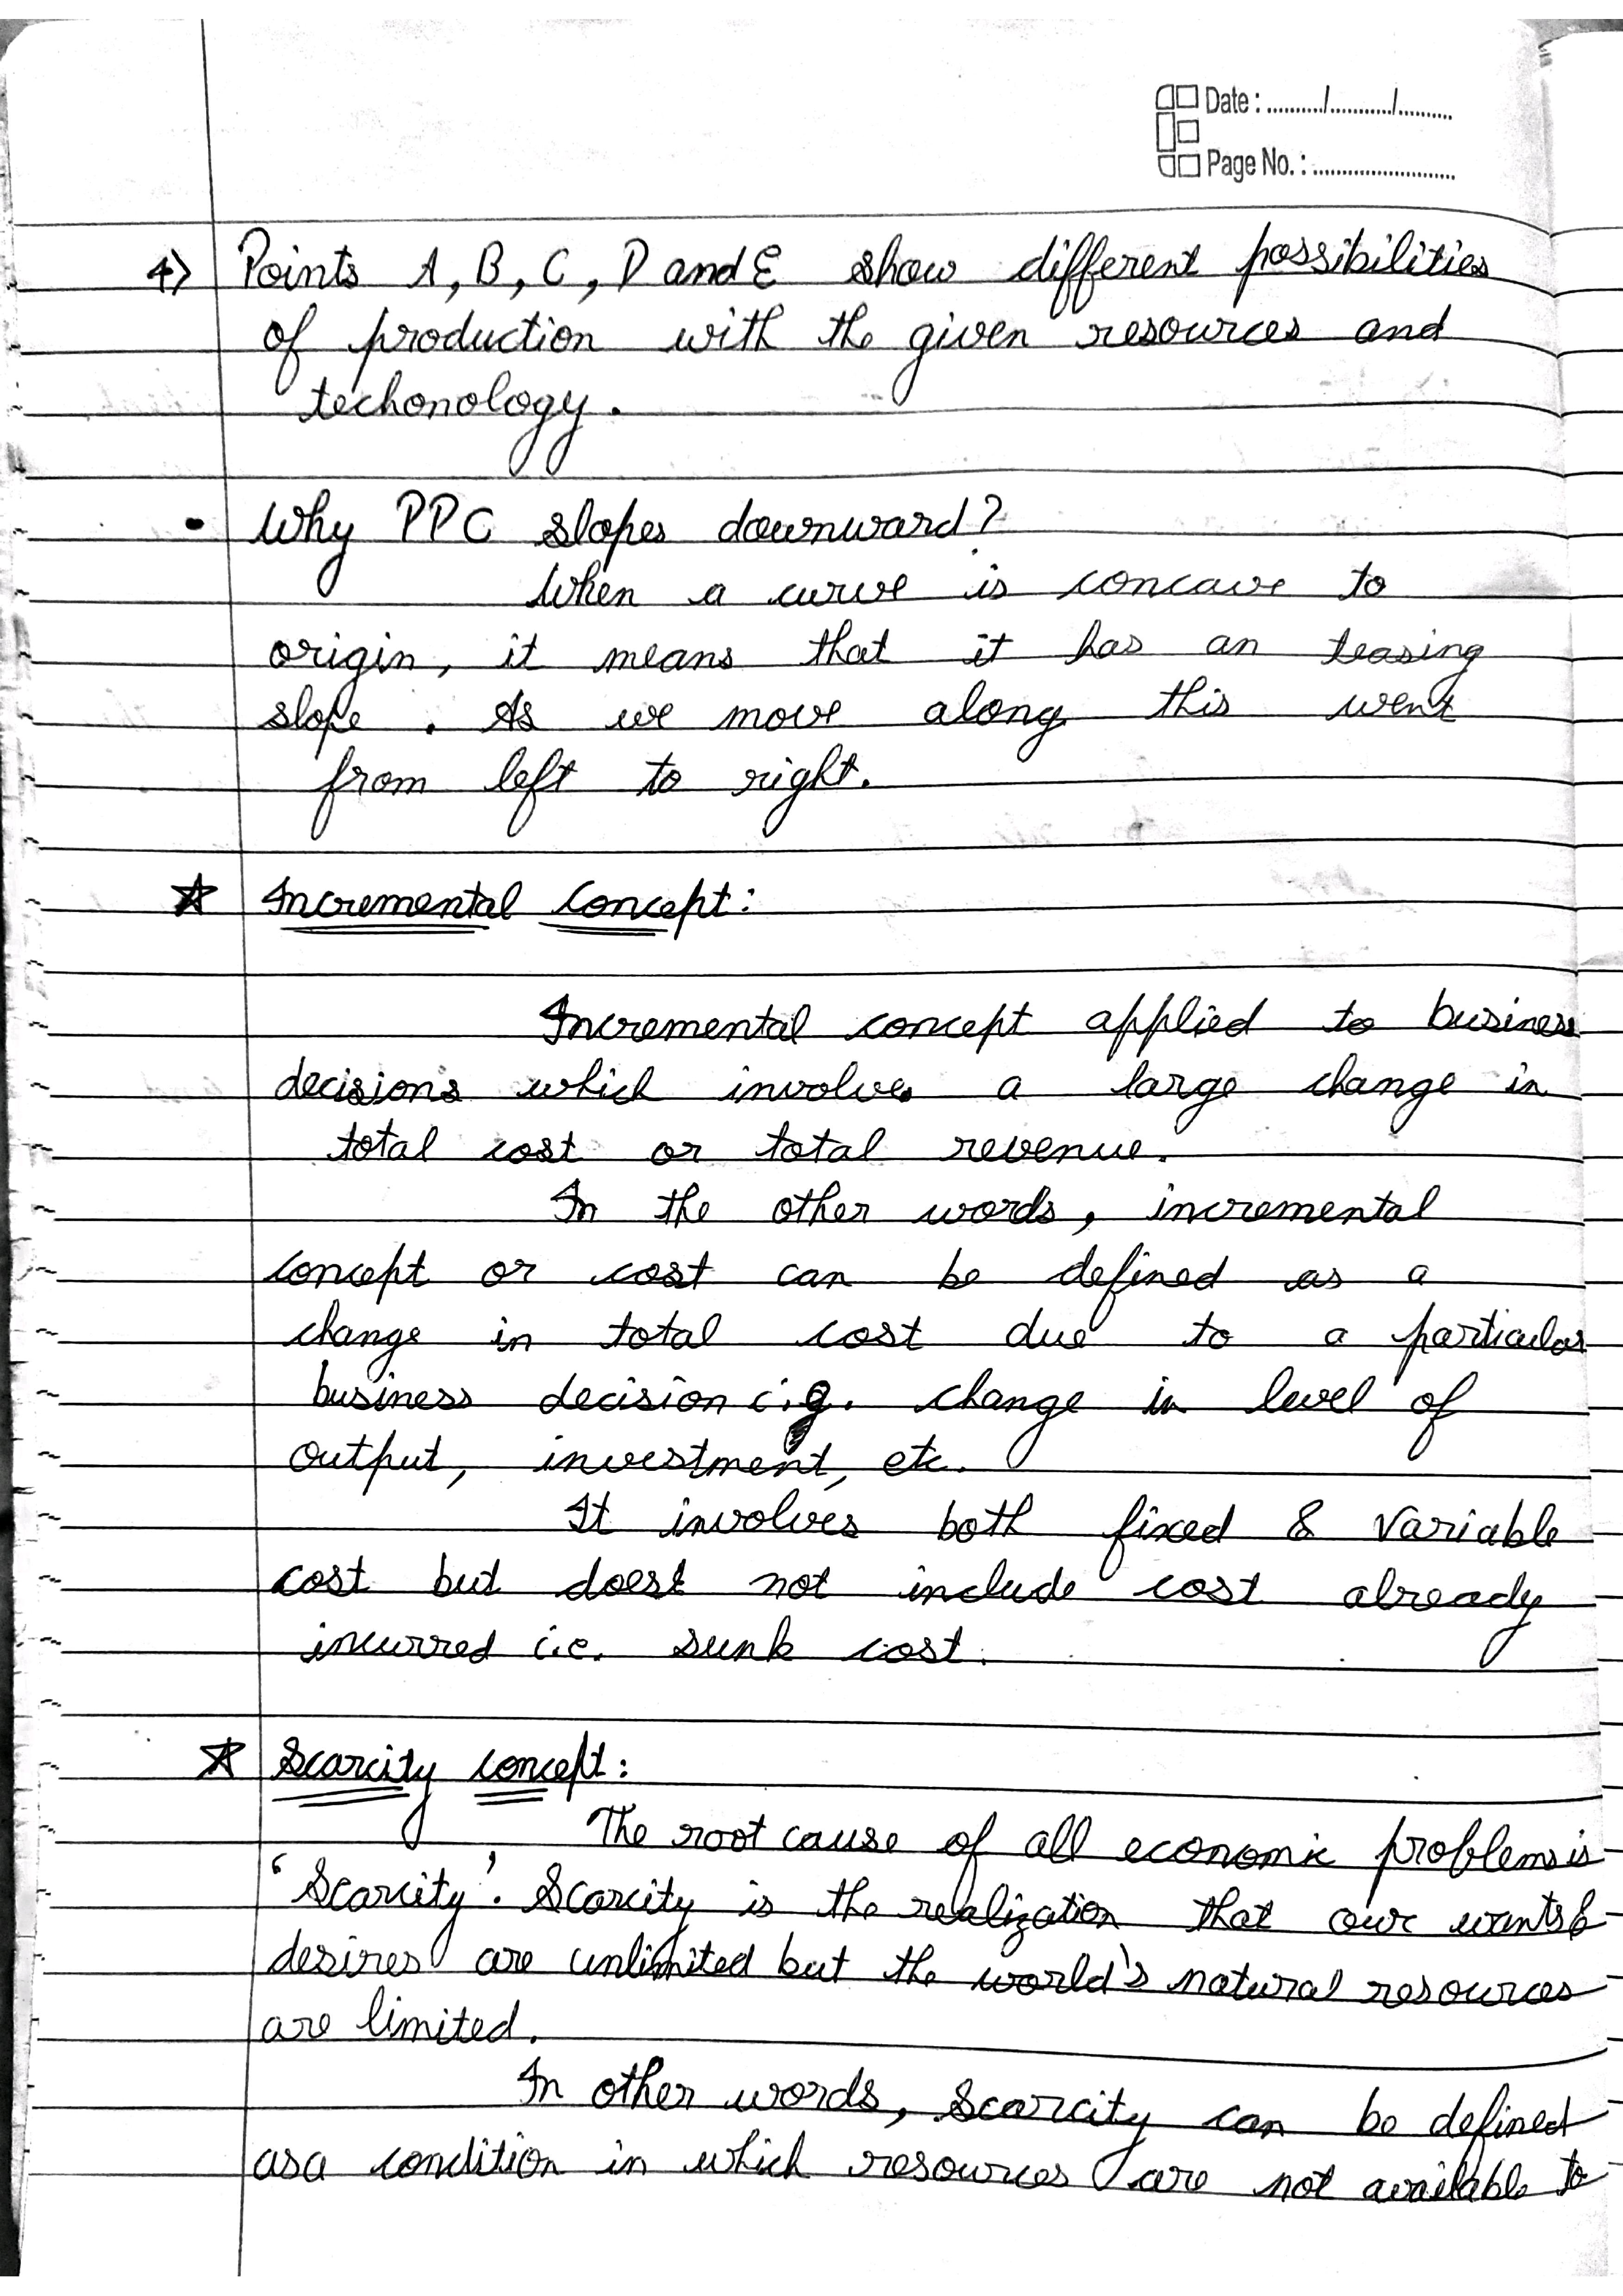 Date : ........../.........../.........
Page No. : .........................
4) Points A, B, C, D and E show different possibilities
of production with the given resources and
techonology.
• Why PPC slopes downward?
When a curve is concave to
origin, it means that it has an teasing
slope. As we move along this went
from left to right.
★ Incremental Concept:
Incremental concept applied to business
decisions which involves a large change in
total cost or total revenue.
In the other words, incremental
concept or cost can be defined as a
change in total cost due to a particular
business decision i.g. change in level of
output, investment, etc.
It involves both fixed & variable
cost but doest not include cost already
incurred i.e. sunk cost.
★ Scarcity concept:
The root cause of all economic problems is
'Scarcity'. Scarcity is the realization that our wants &
desires are unlimited but the world's natural resources
are limited.
In other words, scarcity can be defined
as a condition in which resources are not available to